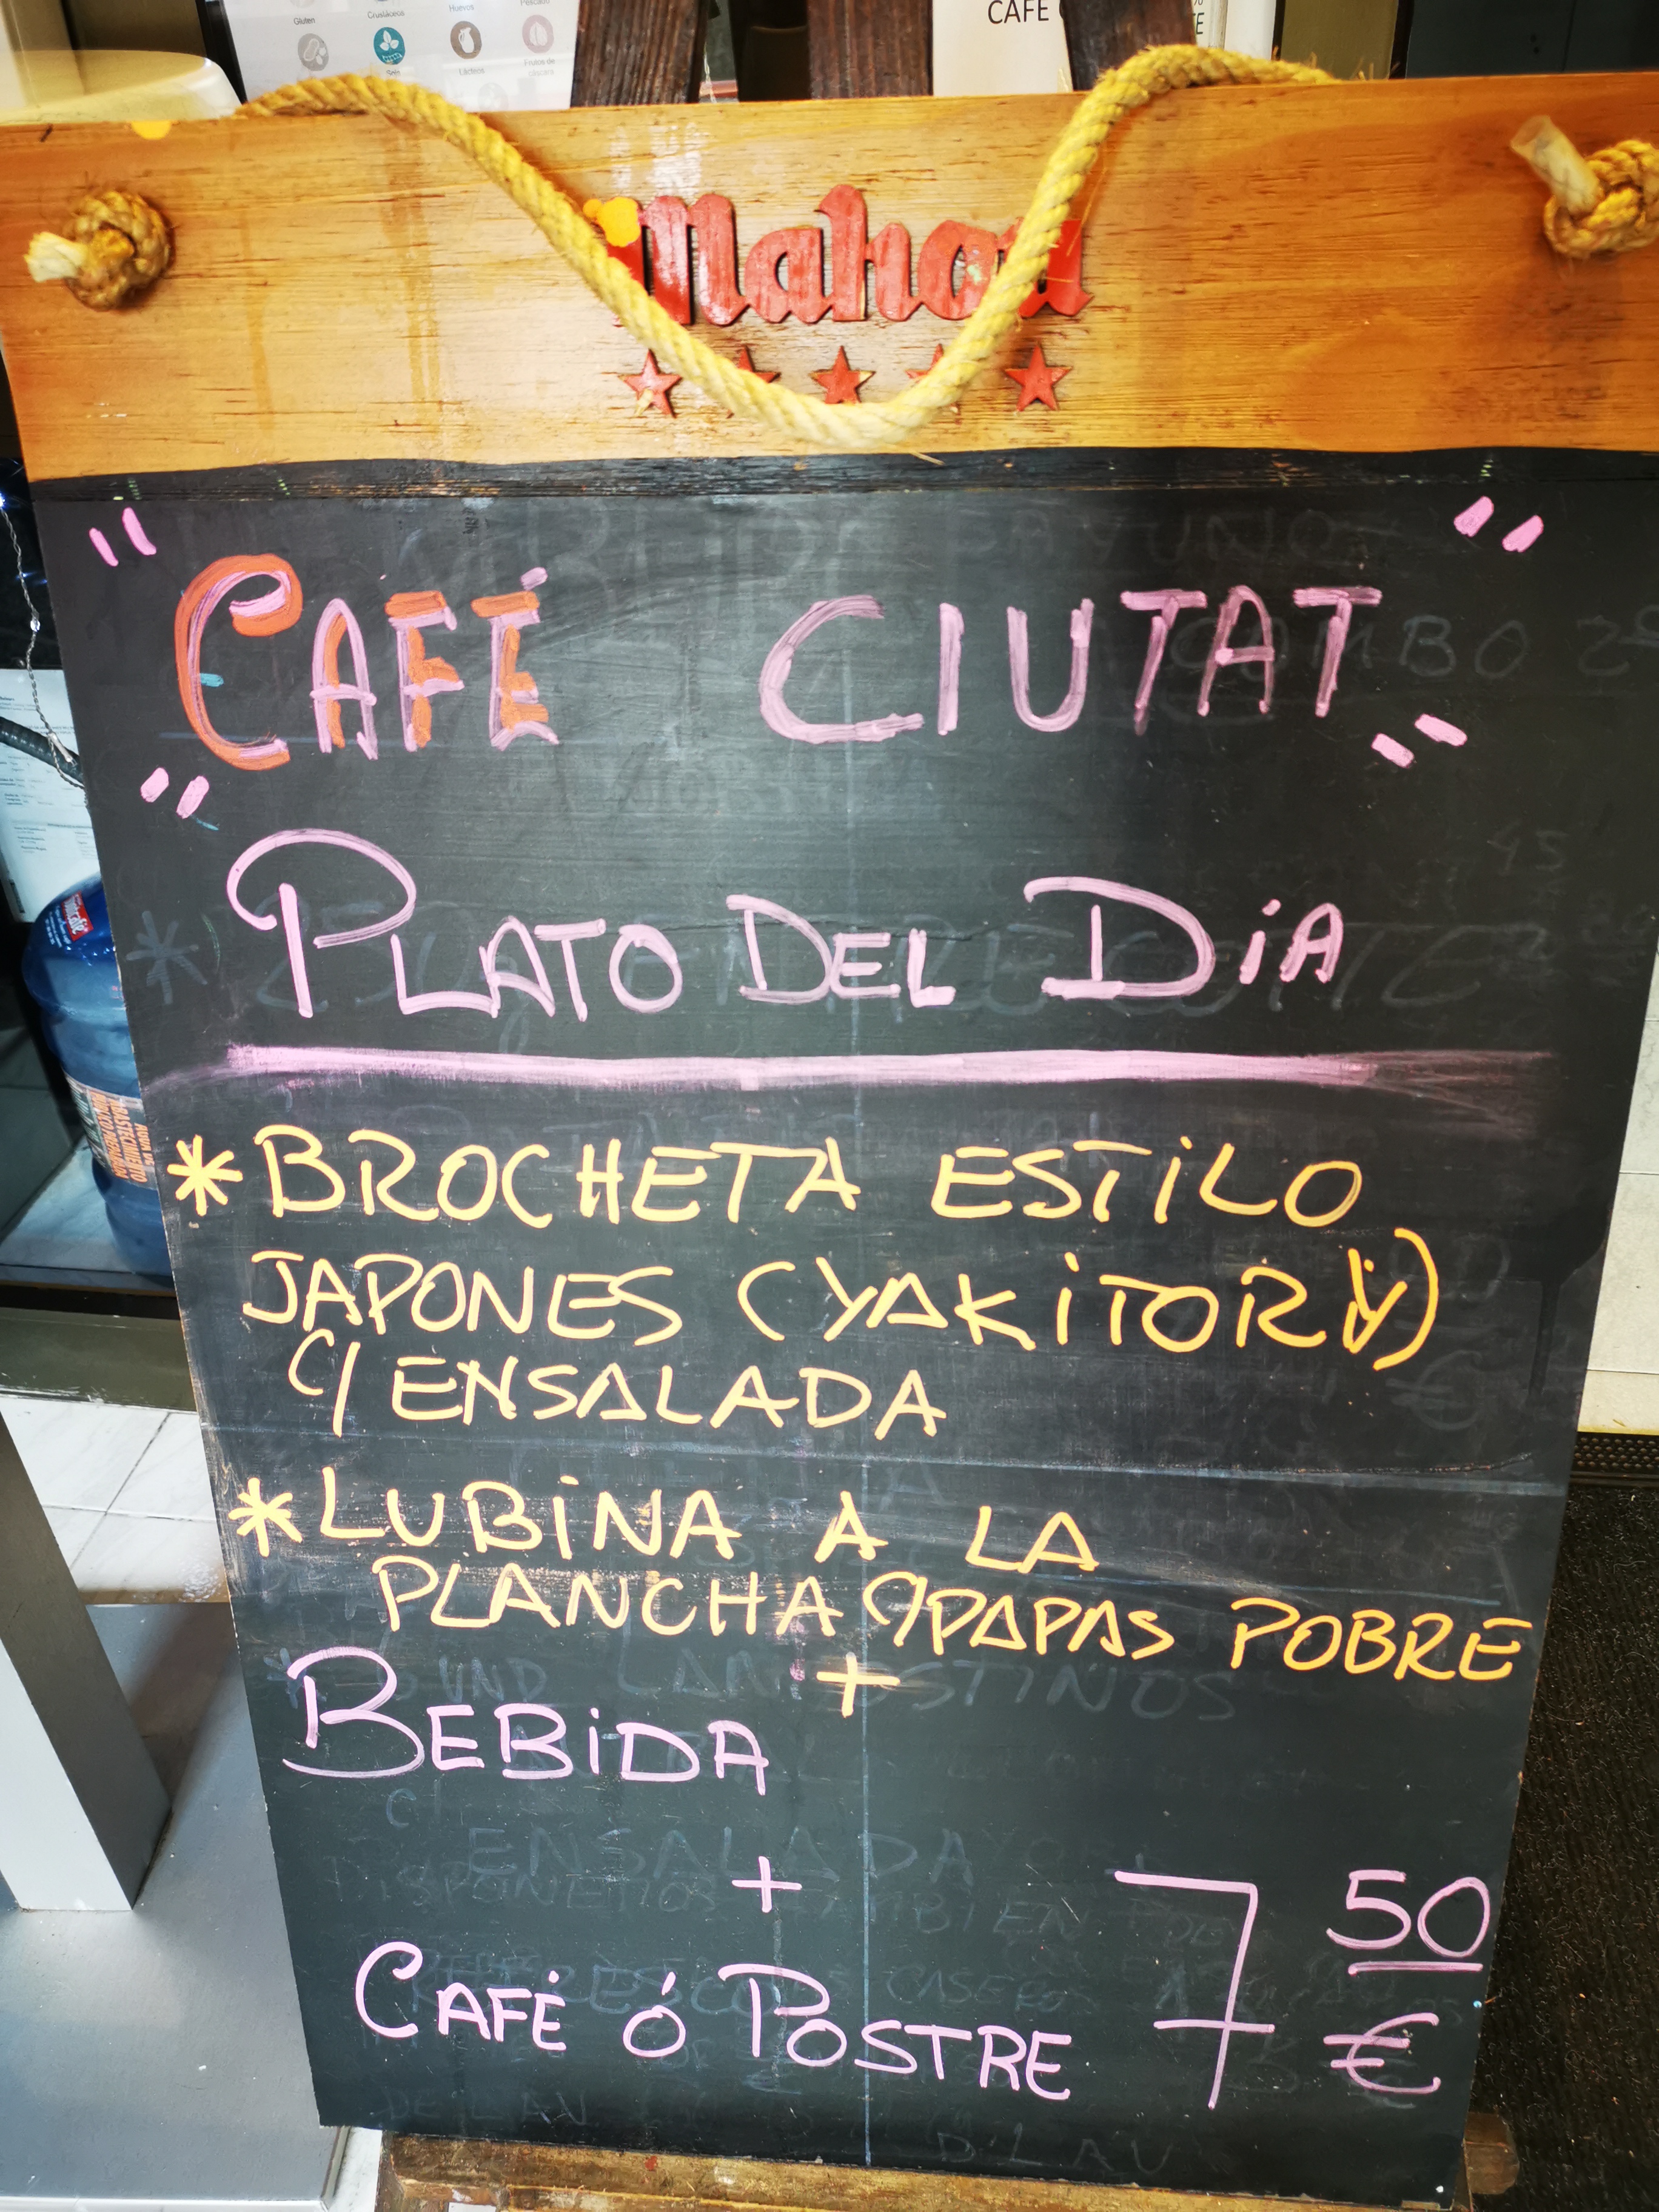 Gluten
Crustáceos
Huevos
Pescado
Lácteos
Frutos de
cáscara
CAFE
Mahou
" CAFÉ CIUTAT "
" PLATO DEL DíA "
* BROCHETA ESTiLO
JAPONES (YAKiTORi)
C/ ENSALADA
* LUBiNA A LA
PLANCHA C/PAPAS POBRE
+
BEBiDA
+
CAFÉ ó POSTRE
7 50 €